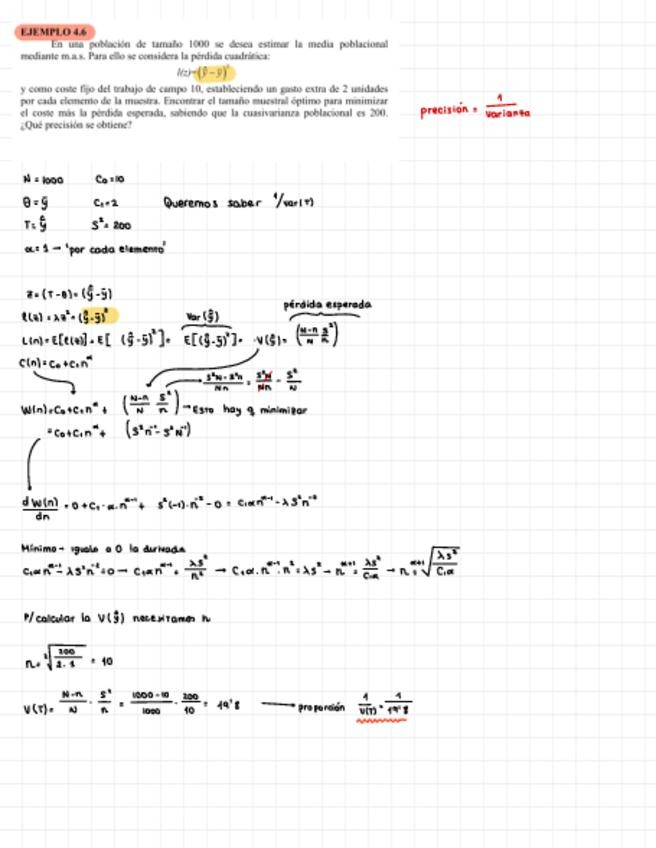 EJEMPLO 4.6
En una población de tamaño 1000 se desea estimar la media poblacional
mediante m.a.s. Para ello se considera la pérdida cuadrática:
l(z)=(ŷ - ȳ)²
y como coste fijo del trabajo de campo 10, estableciendo un gasto extra de 2 unidades
por cada elemento de la muestra. Encontrar el tamaño muestral óptimo para minimizar
el coste más la pérdida esperada, sabiendo que la cuasivarianza poblacional es 200.
¿Qué precisión se obtiene?
precisión = 1/varianza
N = 1000 C₀=10
θ = ȳ C₁=2 Queremos saber 1/var(T)
T= ŷ S²= 200
α= 1 → 'por cada elemento'
z= (T-θ)= (ŷ-ȳ)
ℓ(z)= λz²= (ŷ-ȳ)² Var(ŷ) pérdida esperada
L(n)=E[ℓ(z)]= E[ (ŷ-ȳ)²]= E[(ŷ-ȳ)²]= V(ŷ)= (N-n/N S²/n)
C(n)=C₀+C₁n^α
S²N-S²n/Nn = S²N/Nn - S²/N
W(n)=C₀+C₁n^α + (N-n/N S²/n) → Esto hay q minimizar
= C₀+C₁n^α + (S²n⁻¹ - S²N⁻¹)
dW(n)/dn = 0+C₁·α·n^α-1 + S²(-1)·n⁻² - 0 = C₁αn^α-1 - λS²n⁻²
Mínimo → igualo a 0 la derivada
C₁αn^α-1 - λS²n⁻²=0 → C₁αn^α-1 = λS²/n² → C₁α·n^α-1·n²=λS² → n^α+1 = λS²/C₁α → n= ^α+1√λS²/C₁α
P/calcular la V(ŷ) necesitamos n
n= ²√200/2·1 = 10
V(T)= N-n/N · S²/n = 1000-10/1000 · 200/10 = 19'8 → proporción 1/V(T) = 1/19'8